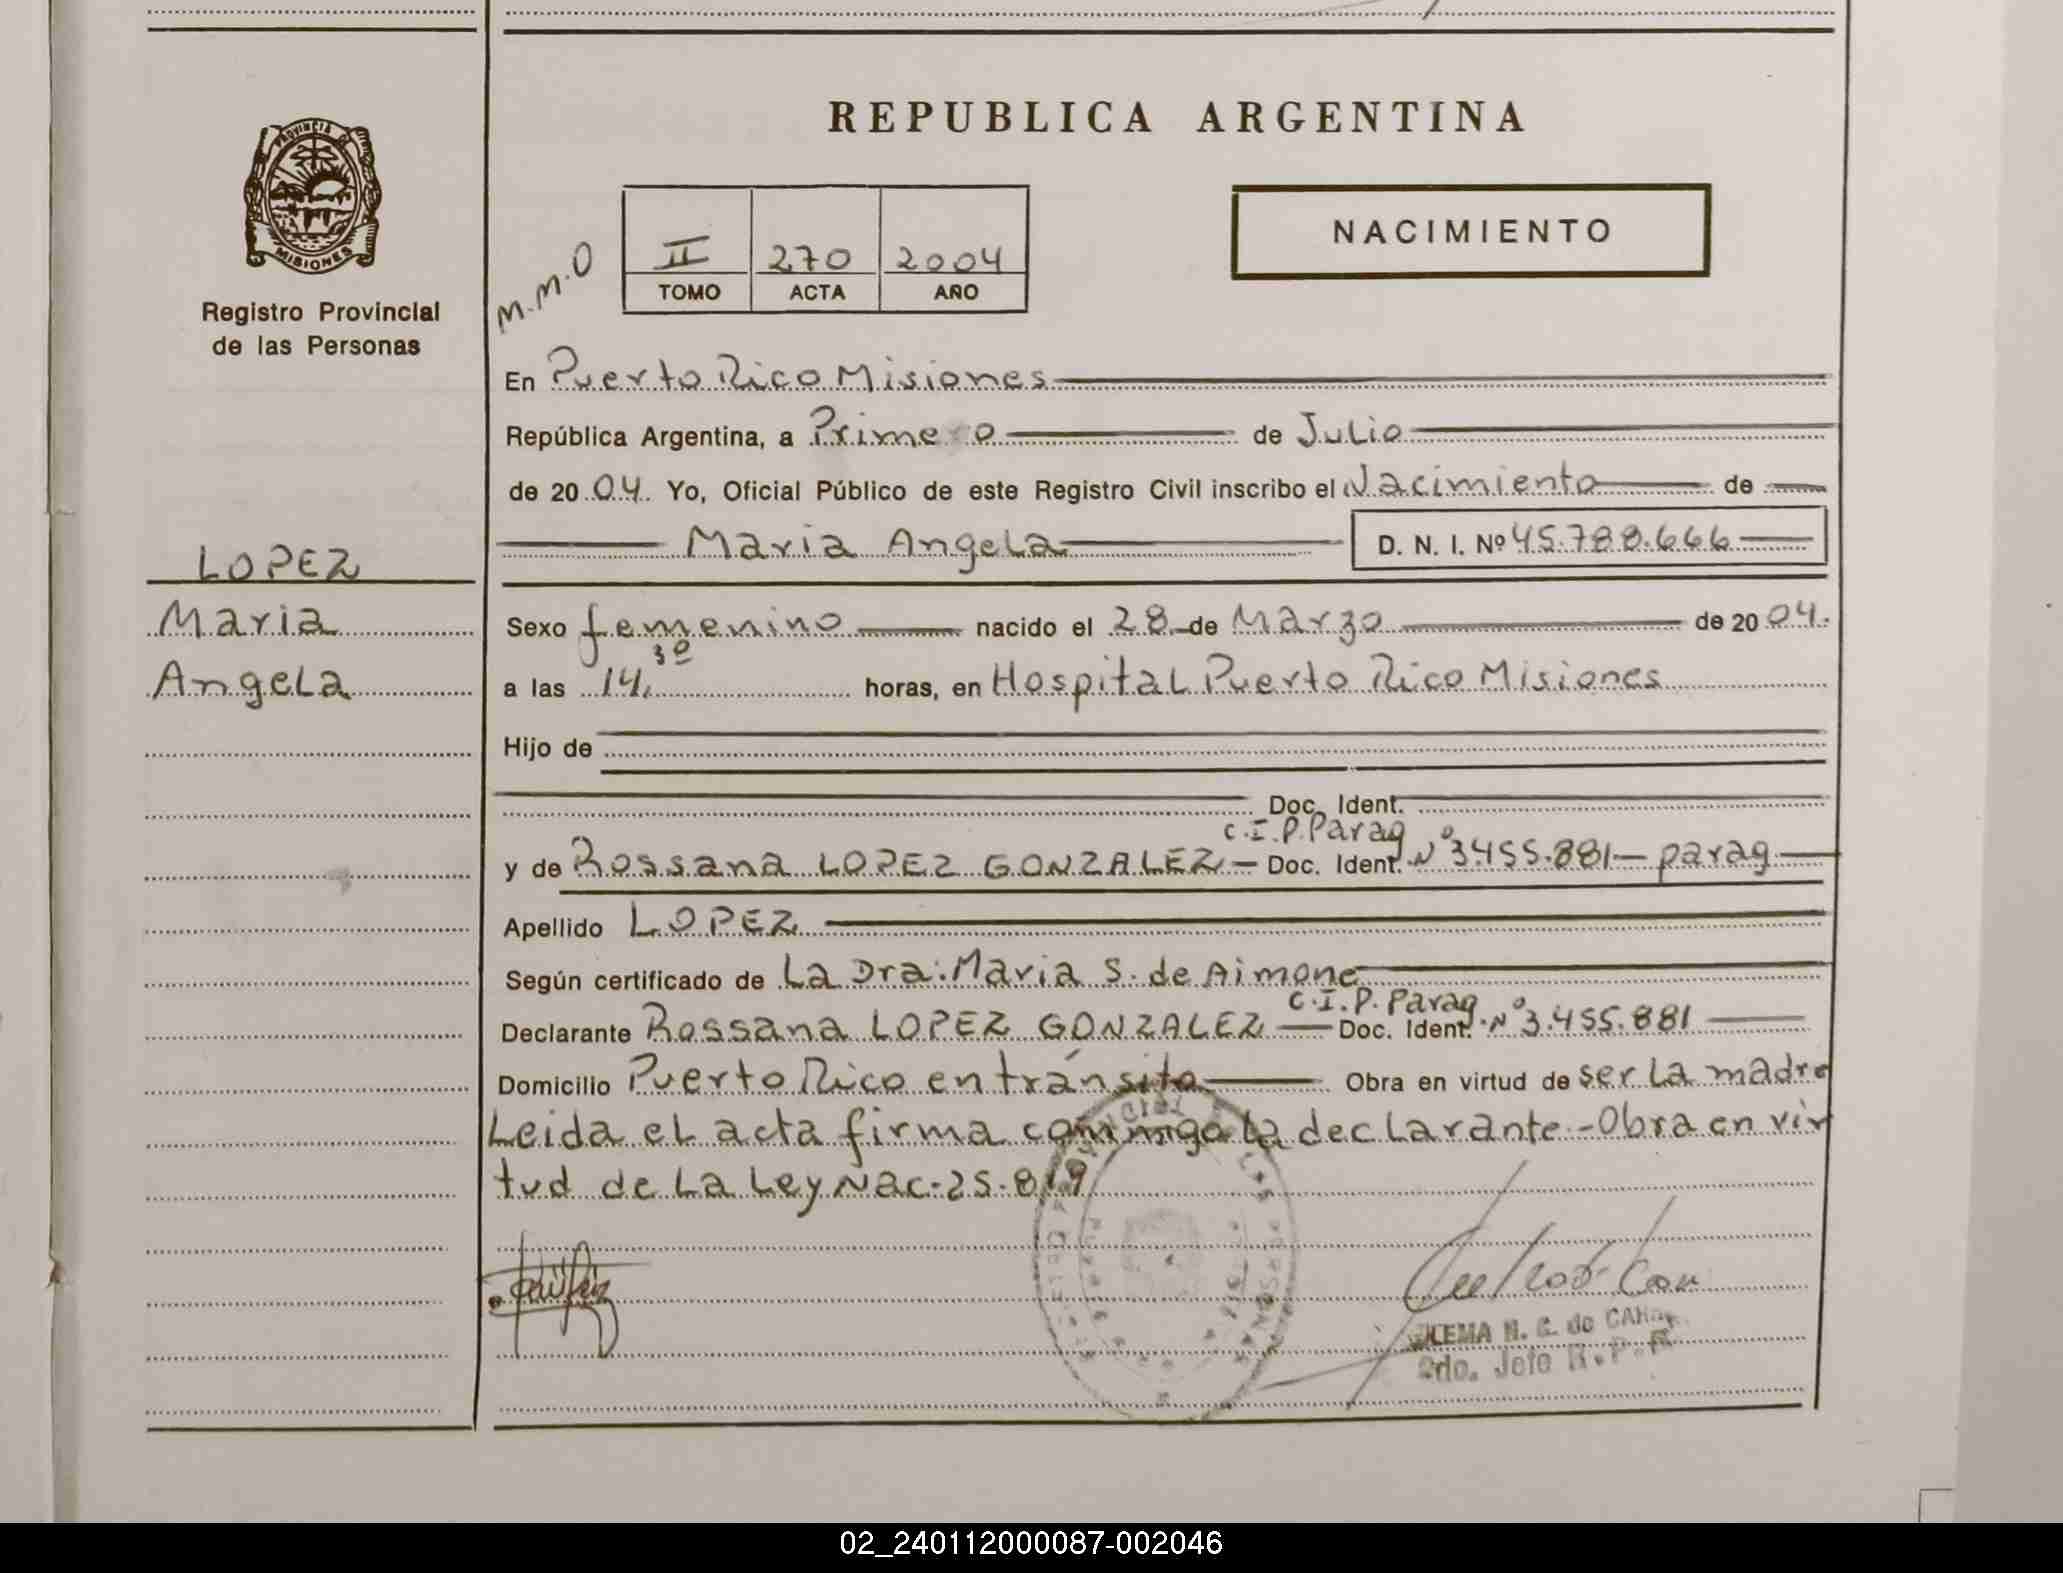 REPUBLICA ARGENTINA
PROVINCIA DE
MISIONES
Registro Provincial
de las Personas
M.M.O
II 270 2004
TOMO ACTA AÑO
NACIMIENTO
En Puerto Rico Misiones
República Argentina, a Primero de Julio
de 2004. Yo, Oficial Público de este Registro Civil inscribo el Nacimiento de
Maria Angela D. N. I. Nº 45.788.666
LOPEZ
Maria
Angela
Sexo femenino nacido el 28 de Marzo de 2004.
a las 14,30 horas, en Hospital Puerto Rico Misiones
Hijo de
Doc. Ident.
C.I.P. Parag
y de Rossana LOPEZ GONZALEZ Doc. Ident. Nº 3.455.881 parag
Apellido LOPEZ
Según certificado de La Dra. Maria S. de Aimone
C.I.P. Parag
Declarante Rossana LOPEZ GONZALEZ Doc. Ident. Nº 3.455.881
Domicilio Puerto Rico en tránsito Obra en virtud de ser la madre
Leida el acta firma conmigo la declarante - Obra en vir
tud de La Ley Nac. 25.819
N. G. de
2do. Jefe R.P.P.
02_240112000087-002046